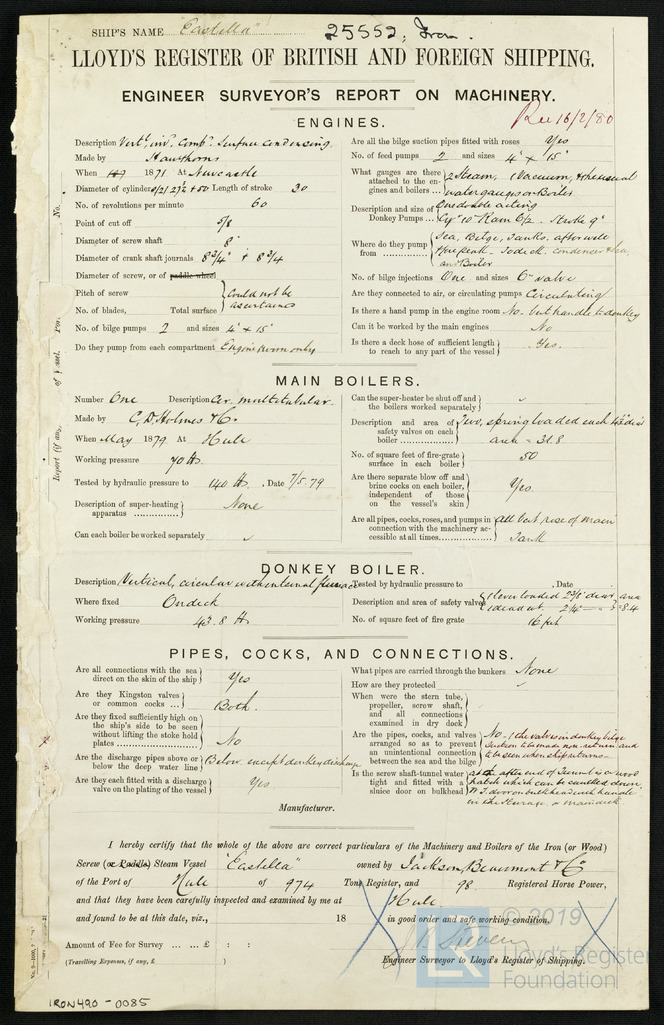 SHIP'S NAME "Eastella" 25552; Iron.
LLOYD'S REGISTER OF BRITISH AND FOREIGN SHIPPING.
ENGINEER SURVEYOR'S REPORT ON MACHINERY.
Rec 16/2/80
ENGINES.
Description Vertl. invd. Compd. Surface Condensing
Made by Hawthorns
When 1871 At Newcastle
Diameter of cylinders 27½ + 50 Length of stroke 30
No. of revolutions per minute 60
Point of cut off 5/8
Diameter of screw shaft 8"
Diameter of crank shaft journals 8¾" + 8¾
Diameter of screw, or of paddle wheel
Pitch of screw
No. of blades, Total surface
Could not be
ascertained
No. of bilge pumps 2 and sizes 4" x 15"
Do they pump from each compartment Engine room only
Are all the bilge suction pipes fitted with roses Yes
No. of feed pumps 2 and sizes 4" x 15"
What gauges are there attached to the engines and boilers ... 2 Steam, 1 Vacuum, & the usual
water gauges on Boiler
Description and size of Donkey Pumps ... One double acting
Cyl 10" Ram 6½ Stroke 9"
Where do they pump from Sea, Bilge, Tanks, after well
Forepeak - To deck, condenser & sea,
and Boiler
No. of bilge injections One and sizes 6" valve
Are they connected to air, or circulating pumps Circulating
Is there a hand pump in the engine room No. but handle to donkey
Can it be worked by the main engines No
Is there a deck hose of sufficient length to reach to any part of the vessel Yes.
MAIN BOILERS.
Number One Description Cir. multitubular.
Made by C. D. Holmes & Co.
When May 1879 At Hull
Working pressure 70 lbs
Tested by hydraulic pressure to 140 lbs. Date 7/5/79
Description of super-heating apparatus None
Can each boiler be worked separately
Can the super-heater be shut off and the boilers worked separately
Description and area of safety valves on each boiler Two, spring loaded each 4½" diar
area = 31.8
No. of square feet of fire-grate surface in each boiler 50
Are there separate blow off and brine cocks on each boiler, independent of those on the vessel's skin Yes
Are all pipes, cocks, roses, and pumps in connection with the machinery accessible at all times All but rose of main
Tank
DONKEY BOILER.
Description Vertical, circular with internal furnace
Where fixed On deck
Working pressure 43.8 lbs
Tested by hydraulic pressure to , Date
Description and area of safety valves 1 lever loaded 2⅜" diar area
1 dead wt. 2¼ " = 8.4
No. of square feet of fire grate 16 feet
PIPES, COCKS, AND CONNECTIONS.
Are all connections with the sea direct on the skin of the ship Yes
Are they Kingston valves or common cocks ... Both.
Are they fixed sufficiently high on the ship's side to be seen without lifting the stoke hold plates No
Are the discharge pipes above or below the deep water line Below, except donkey discharge
Are they each fitted with a discharge valve on the plating of the vessel Yes
What pipes are carried through the bunkers None
How are they protected
When were the stern tube, propeller, screw shaft, and all connections examined in dry dock
Are the pipes, cocks, and valves arranged so as to prevent an unintentional connection between the sea and the bilge No - (the valves in donkey bilge
suction to be made non-return and
to be seen when ship returns -
Is the screw shaft-tunnel water tight and fitted with a sluice door on bulkhead
Manufacturer.
I hereby certify that the whole of the above are correct particulars of the Machinery and Boilers of the Iron (or Wood)
Screw (or Paddle) Steam Vessel "Eastella" owned by Jackson, Beaumont & Co
of the Port of Hull of 974 Tons Register, and 98 Registered Horse Power,
and that they have been carefully inspected and examined by me at Hull
and found to be at this date, viz., 18 in good order and safe working condition.
Amount of Fee for Survey ... ... £ : :
(Travelling Expenses, if any, £ )
Engineer Surveyor to Lloyd's Register of Shipping.
IRON490-0085
© 2019
LR
Lloyd's Register
Foundation